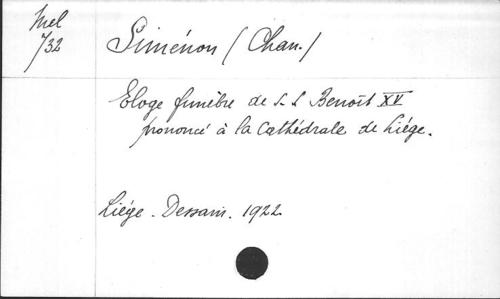 Mel
732
Siménon / Chan. /
Eloge funèbre de S S Benoît XV
prononcé à la Cathédrale de Liége.
Liége. Dessain. 1922